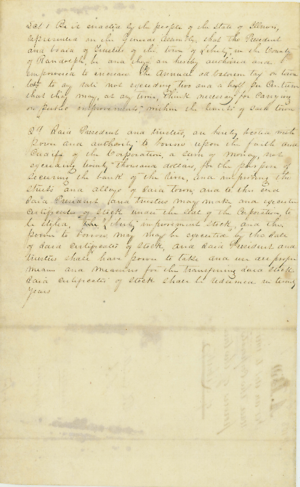 Sec 1 Be it enacted by the people of the State of Illinois,
represented in the General Assembly, that the President
and board of Trustees of the town of in the County
of Randolph, be and they are hereby authorized and
empowered to increase the annual as
to any rate not exceeding two and a half per Centum
that they may, at any time, think necessary for carrying
on public improvements within the limits of said town
§ 2 Said President and trustees, are hereby vested with
Power and authority to borrow upon the faith and
of the Corporation, a sum of money, not
exceeding twenty Thousand dollars, for the purpose of
Securing the bank of the river, and improving the
streets and alleys of said town, and to this end
said President and Trustees may make and execute
certificates of Stock under the seal of the Corporation, to
be styled, improvement Stock, and the
power to borrow may be executed by the sale
of said certificates of Stock, and said President and
Trustees shall have power to take and use all proper
means and measures for the transferring said Stock
said certificates of Stock shall be redeemed in twenty
years